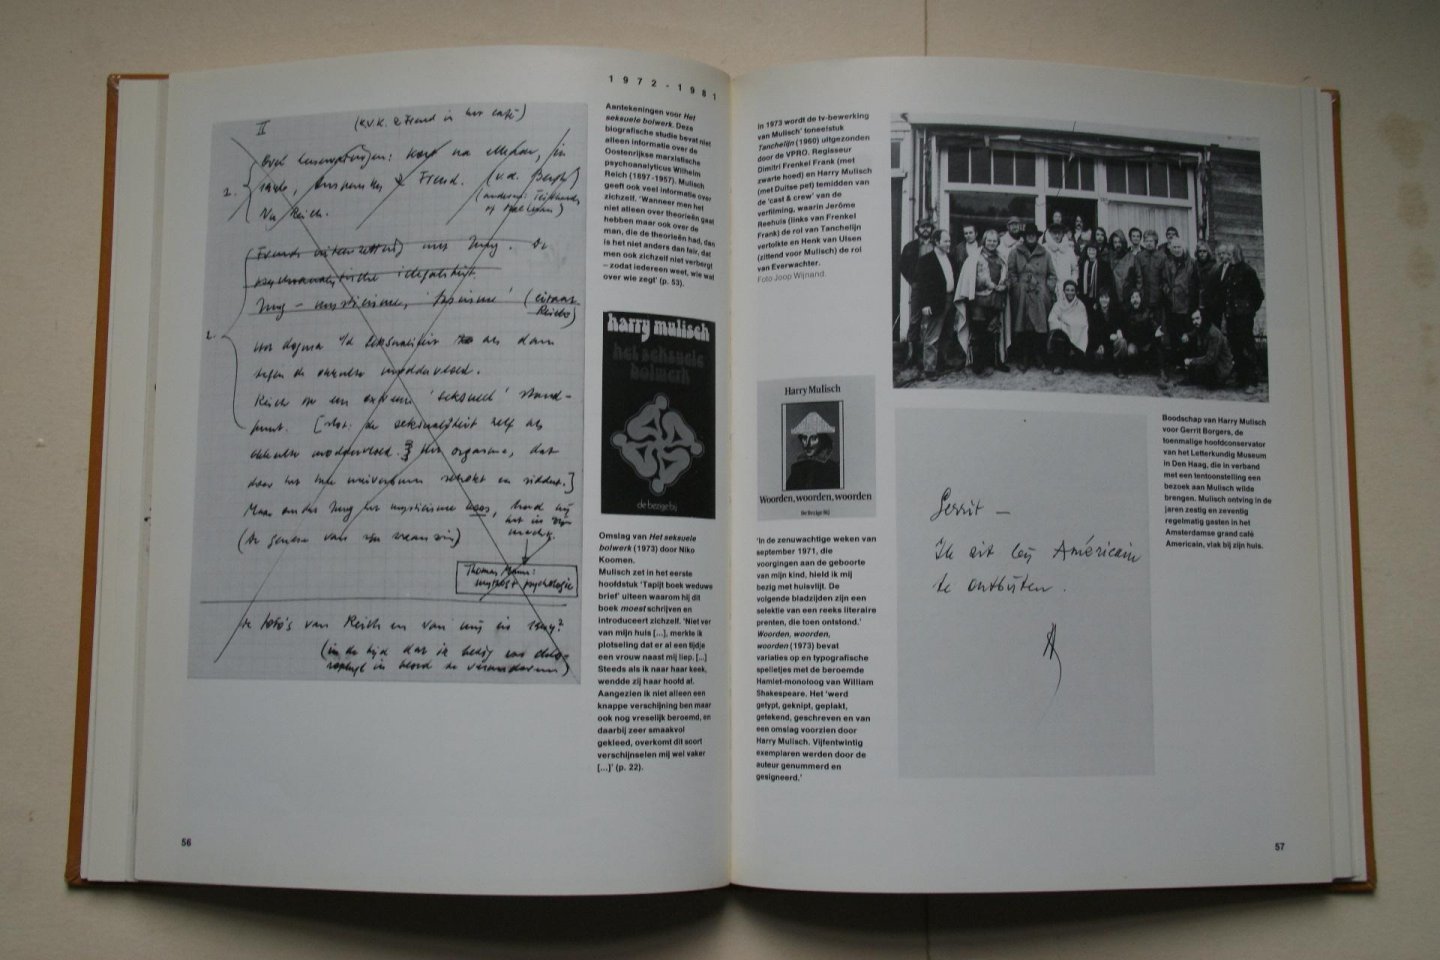 1972-1981
II
(K.v.K. & Freud in het café)
2.
Freud. (v.d. Bergh)
Nu Reich.
1.
Jung – mysticisme, 'fascisme' (citaat Reich)
als dam
tegen de occulte moddervloed.
Reich nu een extreem 'seksueel' stand-
punt. de seksualiteit zelf als
occulte moddervloed. Het orgasme, dat
door het hele universum schokt en siddert.]
(de genese van zijn waanzin)
Thomas Mann:
mythos + psychologie
de foto's van Reich en van mij in
(in de tijd dat ik bezig was
Aantekeningen voor Het
seksuele bolwerk. Deze
biografische studie bevat niet
alleen informatie over de
Oostenrijkse marxistische
psychoanalyticus Wilhelm
Reich (1897-1957). Mulisch
geeft ook veel informatie over
zichzelf. 'Wanneer men het
niet alleen over theorieën gaat
hebben maar ook over de
man, die de theorieën had, dan
is het niet anders dan fair, dat
men ook zichzelf niet verbergt
– zodat iedereen weet, wie wat
over wie zegt' (p. 53).
harry mulisch
het seksuele
bolwerk
de bezige bij
Omslag van Het seksuele
bolwerk (1973) door Niko
Koomen.
Mulisch zet in het eerste
hoofdstuk 'Tapijt boek weduwe
brief' uiteen waarom hij dit
boek moest schrijven en
introduceert zichzelf. 'Niet ver
van mijn huis [...], merkte ik
plotseling dat er al een tijdje
een vrouw naast mij liep. [...]
Steeds als ik naar haar keek,
wendde zij haar hoofd af.
Aangezien ik niet alleen een
knappe verschijning ben maar
ook nog vreselijk beroemd, en
daarbij zeer smaakvol
gekleed, overkomt dit soort
verschijnselen mij wel vaker
[...]' (p. 22).
56
In 1973 wordt de tv-bewerking
van Mulisch' toneelstuk
Tanchelijn (1960) uitgezonden
door de VPRO. Regisseur
Dimitri Frenkel Frank (met
zwarte hoed) en Harry Mulisch
(met Duitse pet) temidden van
de 'cast & crew' van de
verfilming, waarin Jerôme
Reehuis (links van Frenkel
Frank) de rol van Tanchelijn
vertolkte en Henk van Ulsen
(zittend voor Mulisch) de rol
van Everwachter.
Foto Joop Wijnand.
Harry Mulisch
Woorden, woorden, woorden
De Bezige Bij
'In de zenuwachtige weken van
september 1971, die
voorgingen aan de geboorte
van mijn kind, hield ik mij
bezig met huisvlijt. De
volgende bladzijden zijn een
selektie van een reeks literaire
prenten, die toen ontstond.'
Woorden, woorden,
woorden (1973) bevat
variaties op en typografische
spelletjes met de beroemde
Hamlet-monoloog van William
Shakespeare. Het 'werd
getypt, geknipt, geplakt,
getekend, geschreven en van
een omslag voorzien door
Harry Mulisch. Vijfentwintig
exemplaren werden door de
auteur genummerd en
gesigneerd.'
Gerrit –
Ik zit bij Américain
te ontbijten.
H
Boodschap van Harry Mulisch
voor Gerrit Borgers, de
toenmalige hoofdconservator
van het Letterkundig Museum
in Den Haag, die in verband
met een tentoonstelling een
bezoek aan Mulisch wilde
brengen. Mulisch ontving in de
jaren zestig en zeventig
regelmatig gasten in het
Amsterdamse grand café
Americain, vlak bij zijn huis.
57